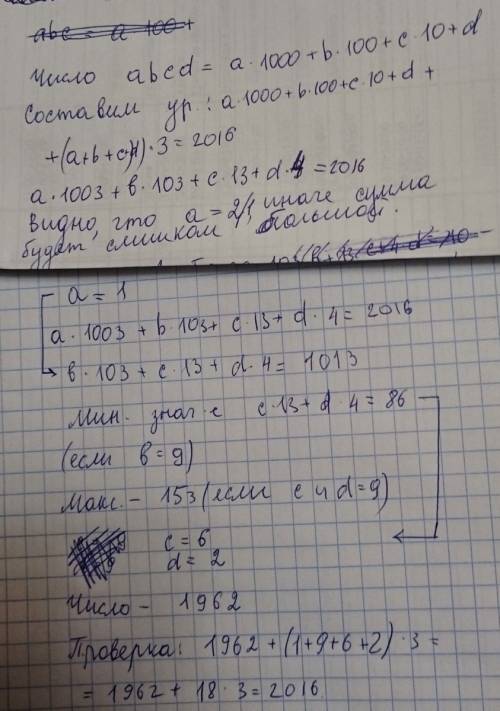 abc = a·100+
Число abcd = a·1000+b·100+c·10+d
Составим ур.: a·1000+b·100+c·10+d+
+(a+b+c+d)·3=2016
a·1003+b·103+c·13+d·4=2016
Видно, что a=2/1, иначе сумма
будет слишком большой.
a=1
a·1003+b·103+c·13+d·4=2016
b·103+c·13+d·4=1013
Мин. знач. c·13+d·4=86
(если b=9)
Макс. - 153 (если c и d=9)
c=6
d=2
Число - 1962
Проверка: 1962+(1+9+6+2)·3=
=1962+18·3=2016